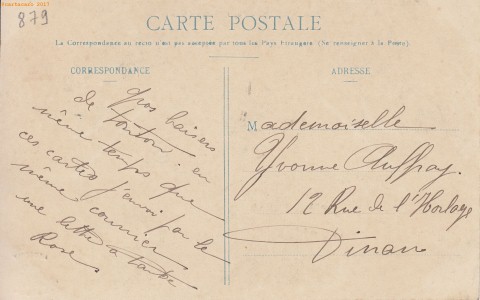 879
CARTE POSTALE
La Correspondance au recto n'est pas acceptée par tous les Pays Etrangers (Se renseigner à la Poste)
CORRESPONDANCE
ADRESSE
Gros baisers
de tonton. en
même temps que
ces cartes j'envoi par le
même courrier
une lettre a tante
Rose
Mademoiselle
Yvonne Auffray
12 Rue de l'Horloge
Dinan